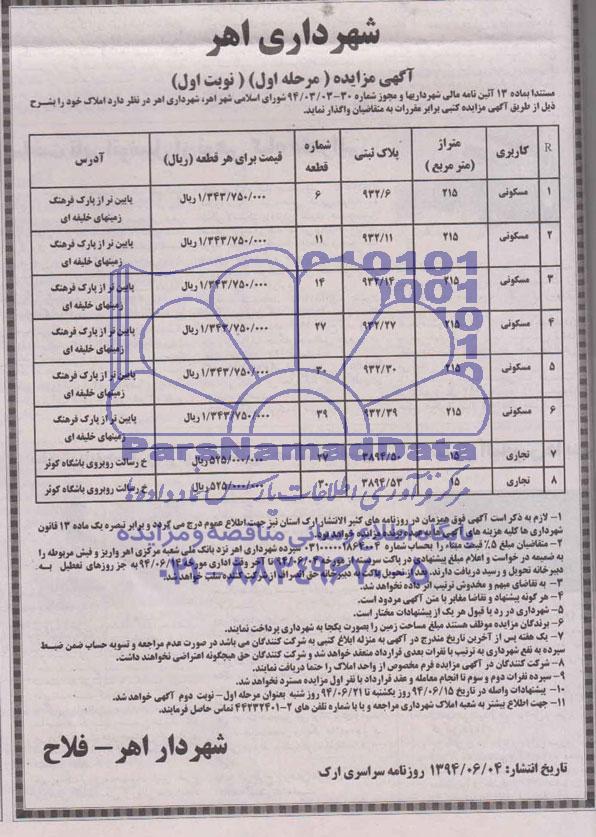 شهرداری اهر
آگهی مزایده ( مرحله اول) ( نوبت اول)
مستندا بماده ۱۳ آئین نامه مالی شهرداریها و مجوز شماره ۳۰-۹۴/۰۳/۰۳ شورای اسلامی شهر اهر، شهرداری اهر در نظر دارد املاک خود را بشرح
ذیل از طریق آگهی مزایده کتبی برابر مقررات به متقاضیان واگذار نماید.
R کاربری متراژ (متر مربع) پلاک ثبتی شماره قطعه قیمت برای هر قطعه (ریال) آدرس
۱ مسکونی ۲۱۵ ۹۳۲/۶ ۶ ۱/۳۴۳/۷۵۰/۰۰۰ ریال پایین تر از پارک فرهنگ زمینهای خلیفه ای
۲ مسکونی ۲۱۵ ۹۳۲/۱۱ ۱۱ ۱/۳۴۳/۷۵۰/۰۰۰ ریال پایین تر از پارک فرهنگ زمینهای خلیفه ای
۳ مسکونی ۲۱۵ ۹۳۲/۱۴ ۱۴ ۱/۳۴۳/۷۵۰/۰۰۰ ریال پایین تر از پارک فرهنگ زمینهای خلیفه ای
۴ مسکونی ۲۱۵ ۹۳۲/۲۷ ۲۷ ۱/۳۴۳/۷۵۰/۰۰۰ ریال پایین تر از پارک فرهنگ زمینهای خلیفه ای
۵ مسکونی ۲۱۵ ۹۳۲/۳۰ ۳۰ ۱/۳۴۳/۷۵۰/۰۰۰ ریال پایین تر از پارک فرهنگ زمینهای خلیفه ای
۶ مسکونی ۲۱۵ ۹۳۲/۳۹ ۳۹ ۱/۳۴۳/۷۵۰/۰۰۰ ریال پایین تر از پارک فرهنگ زمینهای خلیفه ای
۷ تجاری ۱۵ ۳۸۹۴/۵۰ ۲۷ ۵۲۵/۰۰۰/۰۰۰ ریال خ رسالت روبروی باشگاه کوثر
۸ تجاری ۱۵ ۳۸۹۴/۵۳ ۳۰ ۵۲۵/۰۰۰/۰۰۰ ریال خ رسالت روبروی باشگاه کوثر
ParsNamadData
مرکز فرآوری اطلاعات پارس نماد داده ها
۱- لازم به ذکر است آگهی فوق همزمان در روزنامه های کثیر الانتشار ارک استان نیز جهت اطلاع عموم درج می گردد و برابر تبصره یک ماده ۱۳ قانون
شهرداری ها کلیه هزینه های آگهی به عهده برنده مزایده خواهد بود.
۲- متقاضیان مبلغ ۵٪ قیمت مبنا را بحساب شماره سپرده شهرداری اهر نزد بانک ملی شعبه مرکزی اهر واریز و فیش مربوطه را
به ضمیمه در خواست و اعلام مبلغ پیشنهادی در پاکت سربسته از مورخه تا آخر وقت اداری مورخه به جز روزهای تعطیل به
دبیرخانه تحویل و رسید دریافت دارند. بعد از تحویل پاکت به دبیرخانه حق انصراف از شرکت کننده سلب خواهد شد.
۳- به تقاضای مبهم و مخدوش ترتیب اثر داده نخواهد شد.
۴- هر گونه پیشنهاد و تقاضا مغایر با متن آگهی مردود است.
۵- شهرداری در رد یا قبول هر یک از پیشنهادات مختار است.
۶- برندگان مزایده موظف هستند مبلغ مساحت زمین را بصورت یکجا به شهرداری پرداخت نمایند.
۷- یک هفته پس از آخرین تاریخ مندرج در آگهی به منزله ابلاغ کتبی به شرکت کنندگان می باشد در صورت عدم مراجعه و تسویه حساب ضمن ضبط
سپرده به نفع شهرداری به ترتیب با نفرات بعدی قرارداد منعقد خواهد شد و شرکت کنندگان حق هیچگونه اعتراضی نخواهند داشت.
۸- شرکت کنندگان در آگهی مزایده فرم مخصوص از واحد املاک را حتما دریافت نمایند.
۹- سپرده نفرات دوم و سوم تا انجام معامله و عقد قرارداد با نفر اول مزایده مسترد نخواهد شد.
۱۰- پیشنهادات واصله در تاریخ ۹۴/۰۶/۱۵ روز یکشنبه تا ۹۴/۰۶/۲۱ روز شنبه بعنوان مرحله اول- نوبت دوم آگهی خواهد شد.
۱۱- جهت اطلاع بیشتر به شعبه املاک شهرداری مراجعه و یا با شماره تلفن های ۲-۴۴۲۳۲۴۰۱ تماس حاصل فرمایند.
شهردار اهر- فلاح
تاریخ انتشار: ۱۳۹۴/۰۶/۰۴ روزنامه سراسری ارک